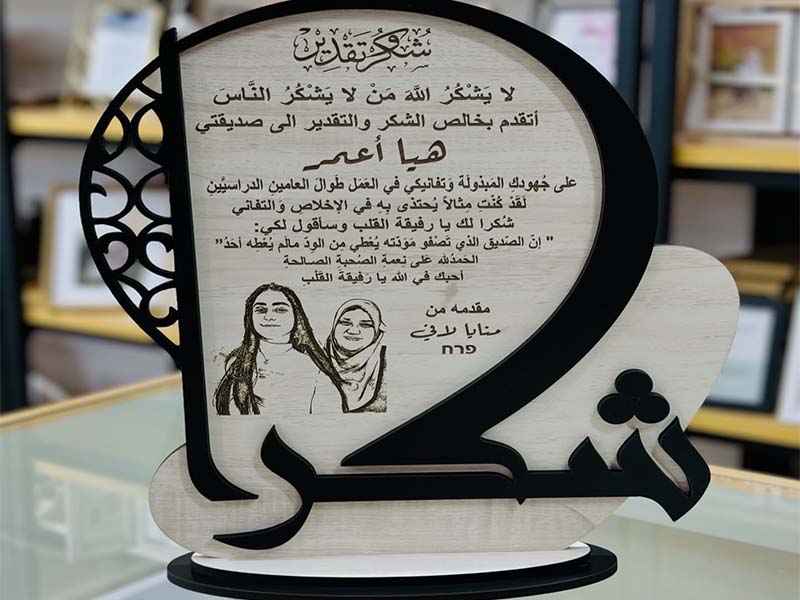 شكر وتقدير
لا يَشْكُرُ اللهَ مَنْ لا يَشْكُرُ النَّاسَ
أتقدم بخالص الشكر والتقدير الى صديقتي
هيا أعمر
على جُهودك المَبذولَة وَتفانيكي في العَمَل طَوالَ العامينِ الدراسيَّينِ
لَقَدْ كُنْتِ مِثالاً يُحتذى بِهِ في الإخلاصِ وَالتفاني
شكرا لك يا رفيقة القلب وسأقول لكي:
" إنّ الصَديق الذي تَصْفو مَوَدّته يُعْطي مِن الودّ مالَم يُعْطِه أحَدُ"
الحَمدُلله عَلى نِعمةِ الصُحبةِ الصـالحةِ
أحبك في الله يا رَفيقةَ القَلْب
مقدمه من
منايا لافي
פרח
شكرا